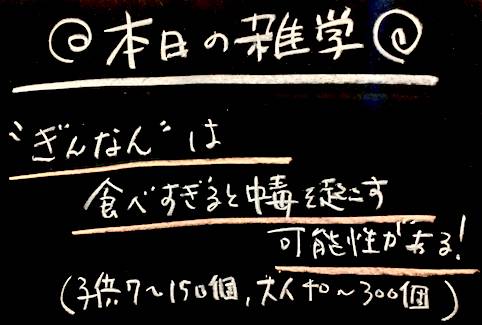 @本日の雑学@
"ぎんなん"は
食べすぎると中毒を起こす
可能性がある!
(子供7~150個,大人40~300個)